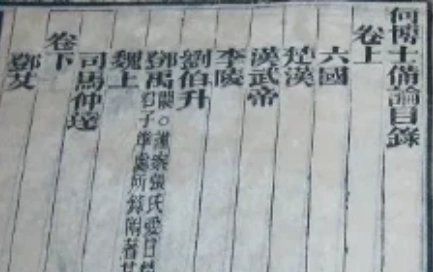 何博士備論目錄
卷上
六國
楚漢
漢武帝
李陵
劉伯升
鄧禹 闕○謹案張氏愛日
子準處所錄附著
魏上
司馬仲達
卷下
鄧艾